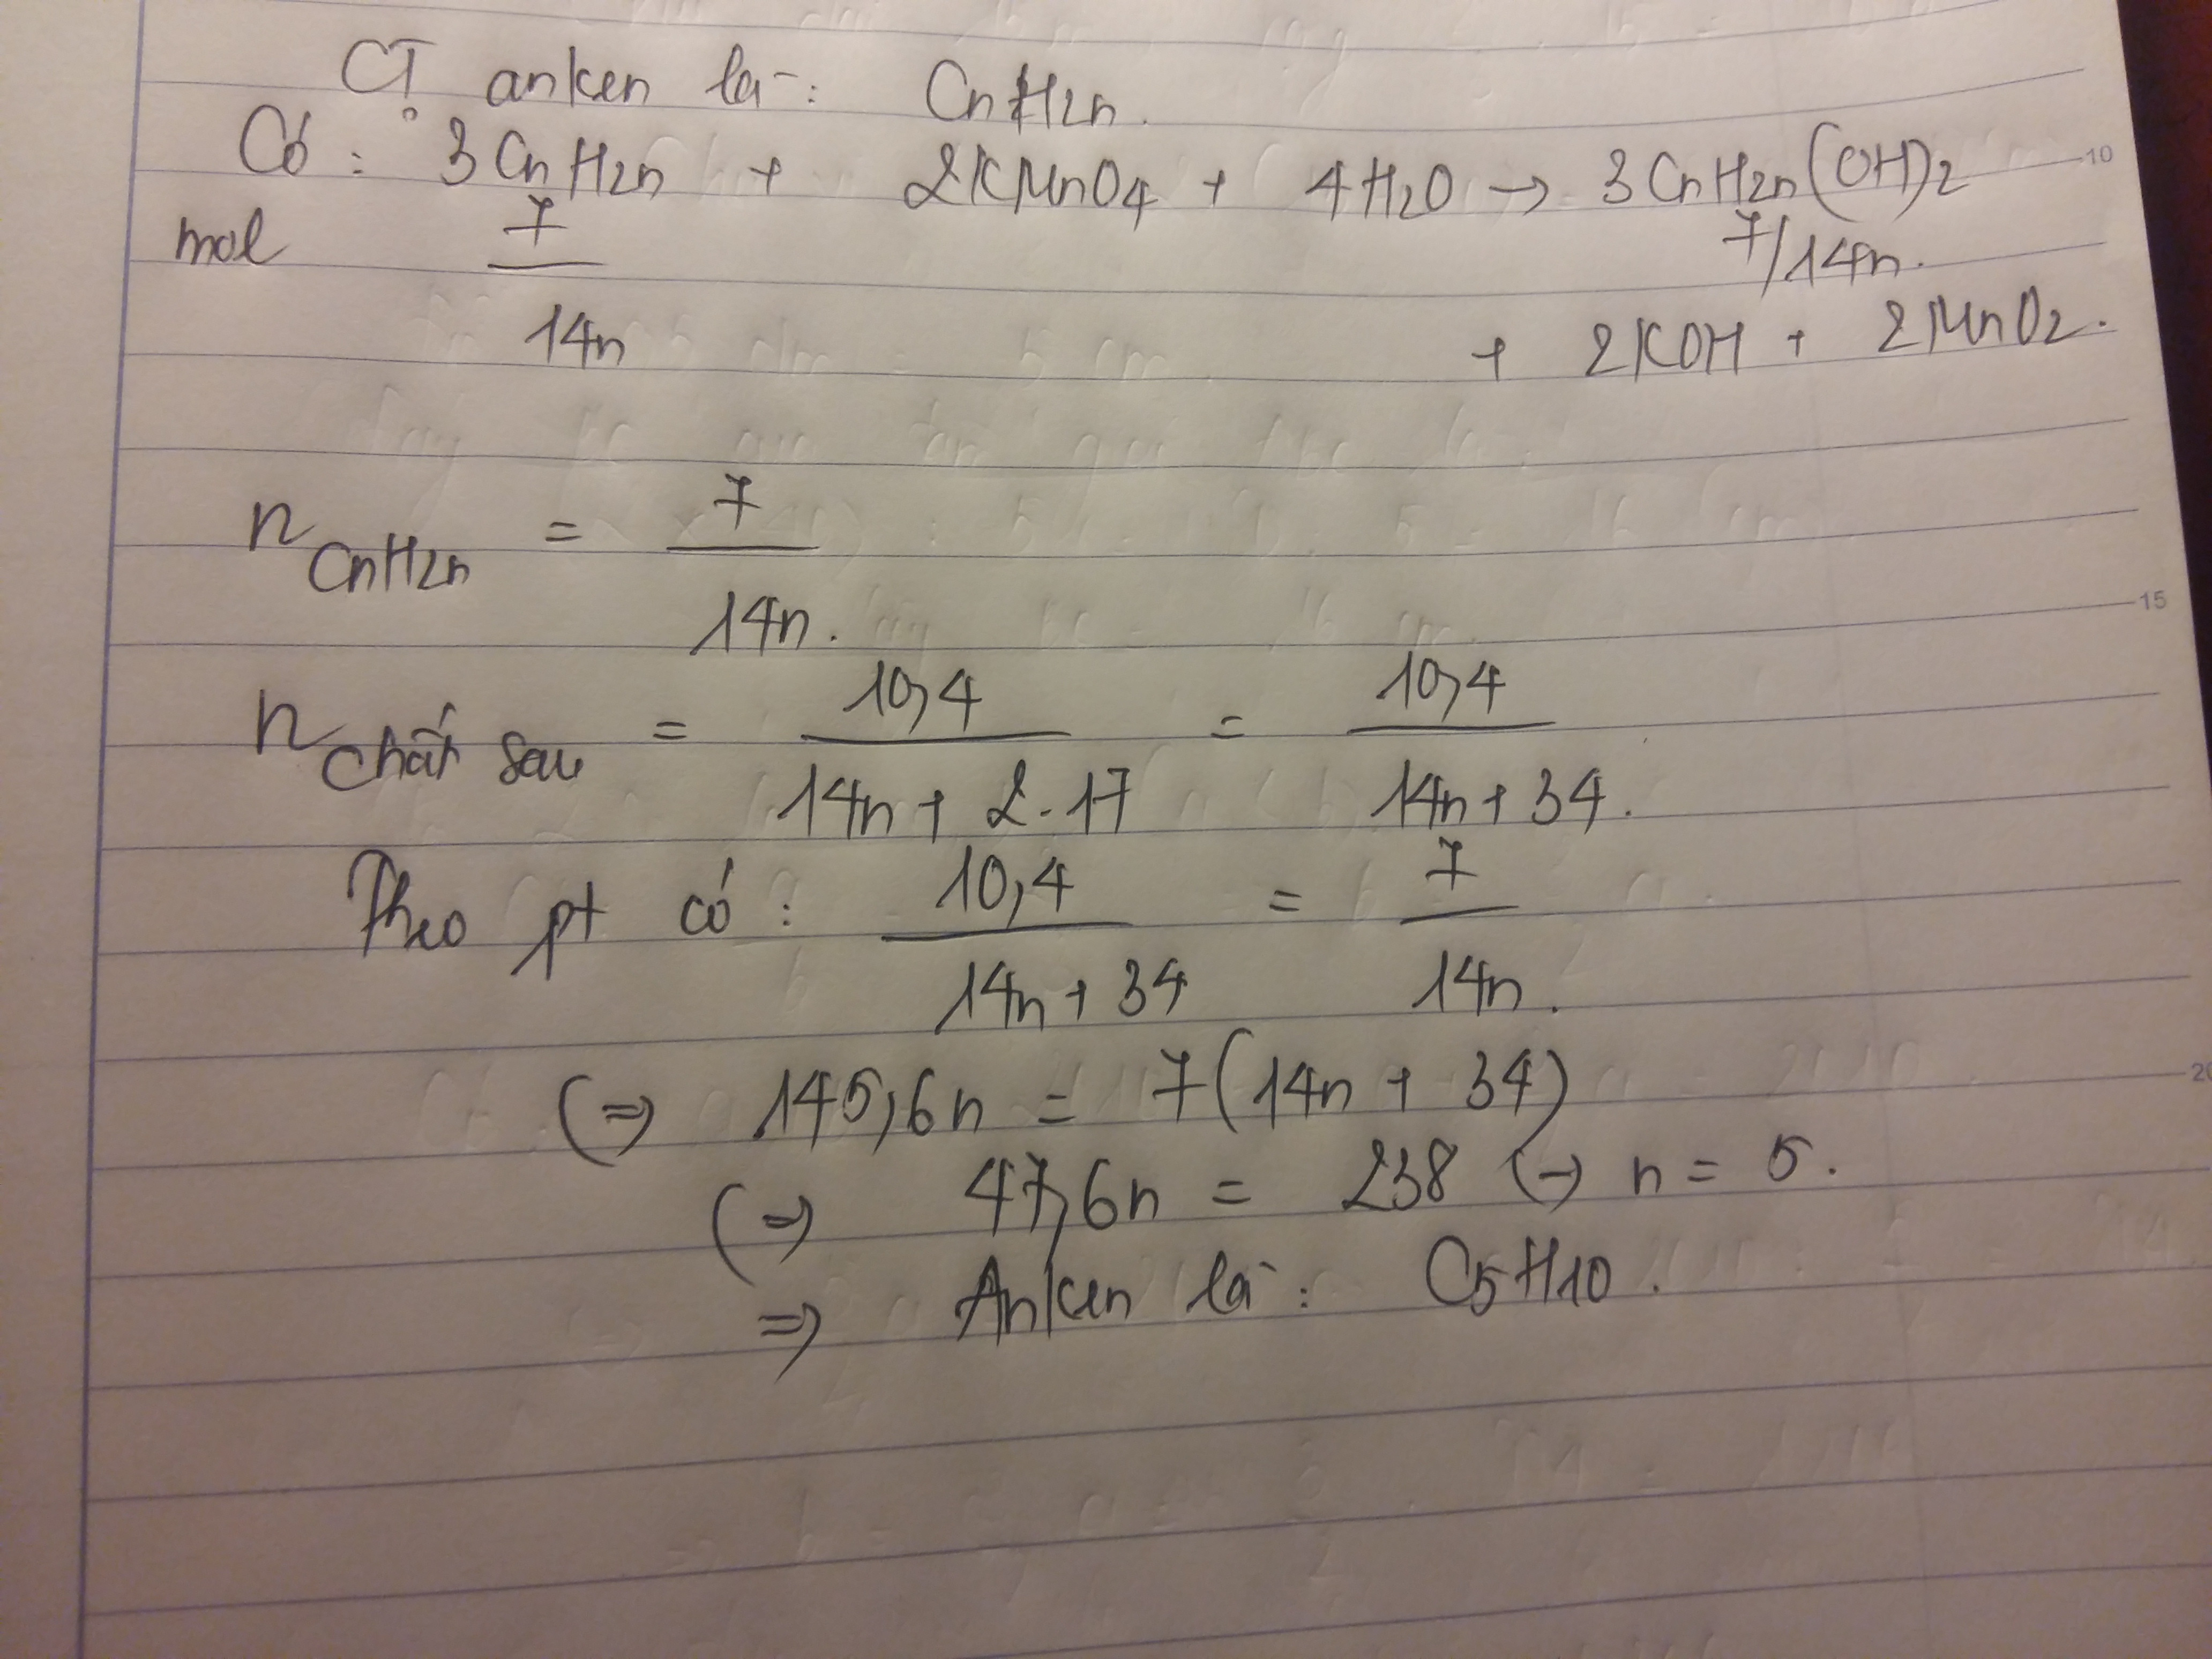 CT anken là : CnH2n.
Có : 3CnH2n + 2KMnO4 + 4H2O → 3CnH2n(OH)2
mol 7/14n 7/14n.
+ 2KOH + 2MnO2.
10
n CnH2n = 7/14n.
15
n chất sau = 10,4/14n + 2.17 = 10,4/14n + 34.
Theo pt có : 10,4/14n + 34 = 7/14n.
(=) 145,6n = 7(14n + 34)
20
(=) 47,6n = 238 (→ n = 5.
=> Anken là : C5H10.